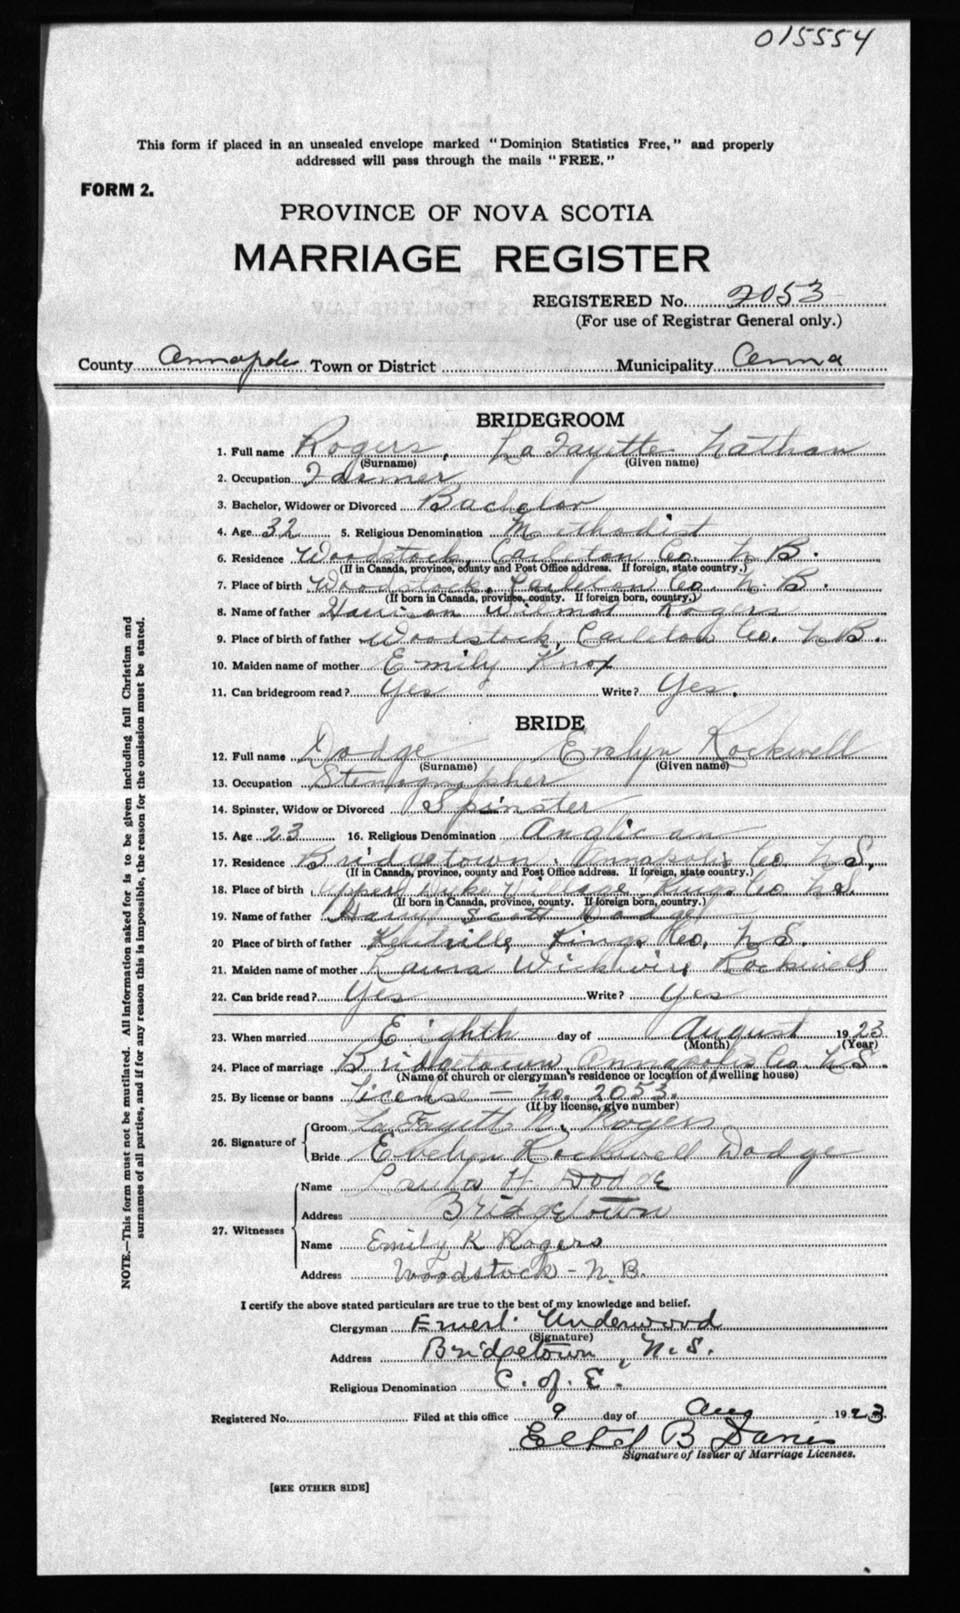 015554
This form if placed in an unsealed envelope marked "Dominion Statistics Free," and properly
addressed will pass through the mails "FREE."
FORM 2.
PROVINCE OF NOVA SCOTIA
MARRIAGE REGISTER
REGISTERED No. 2053
(For use of Registrar General only.)
County Annapolis Town or District Municipality Anna
BRIDEGROOM
1. Full name Rogers, LaFayette Nathan
(Surname) (Given name)
2. Occupation Farmer
3. Bachelor, Widower or Divorced Bachelor
4. Age 32 5. Religious Denomination Methodist
6. Residence Woodstock, Carleton Co. N.B.
(If in Canada, province, county and Post Office address. If foreign, state country.)
7. Place of birth Woodstock, Carleton Co. N.B.
(If born in Canada, province, county. If foreign born, country.)
8. Name of father Harrison Wilmot Rogers
9. Place of birth of father Woodstock, Carleton Co. N.B.
10. Maiden name of mother Emily Knox
11. Can bridegroom read? Yes Write? Yes.
BRIDE
12. Full name Dodge Evelyn Rockwell
(Surname) (Given name)
13. Occupation Stenographer
14. Spinster, Widow or Divorced Spinster
15. Age 23 16. Religious Denomination Anglican
17. Residence Bridgetown, Annapolis Co. N.S.
(If in Canada, province, county and Post Office address. If foreign, state country.)
18. Place of birth Upper Dyke Village Kings Co N.S.
(If born in Canada, province, county. If foreign born, country.)
19. Name of father Harry Scott Dodge
20 Place of birth of father Kentville, Kings Co, N.S.
21. Maiden name of mother Laura Wickwire Rockwell
22. Can bride read? Yes Write? Yes
23. When married Eighth day of August 1923
(Month) (Year)
24. Place of marriage Bridgetown, Annapolis Co. N.S.
(Name of church or clergyman's residence or location of dwelling house)
25. By license or banns License - No. 2053.
(If by license, give number)
26. Signature of Groom LaFayette N. Rogers
Bride Evelyn Rockwell Dodge
27. Witnesses Name Laura W Dodge
Address Bridgetown
Name Emily K Rogers
Address Woodstock - N.B.
I certify the above stated particulars are true to the best of my knowledge and belief.
Clergyman Ernest Underwood
(Signature)
Address Bridgetown, N.S.
Religious Denomination C. of E.
Registered No. Filed at this office 9 day of Aug 1923
B Davis
Signature of Issuer of Marriage Licenses.
[SEE OTHER SIDE]
NOTE.—This form must not be mutilated. All information asked for is to be given including full Christian and
surnames of all parties, and if for any reason this is impossible, the reason for the omission must be stated.